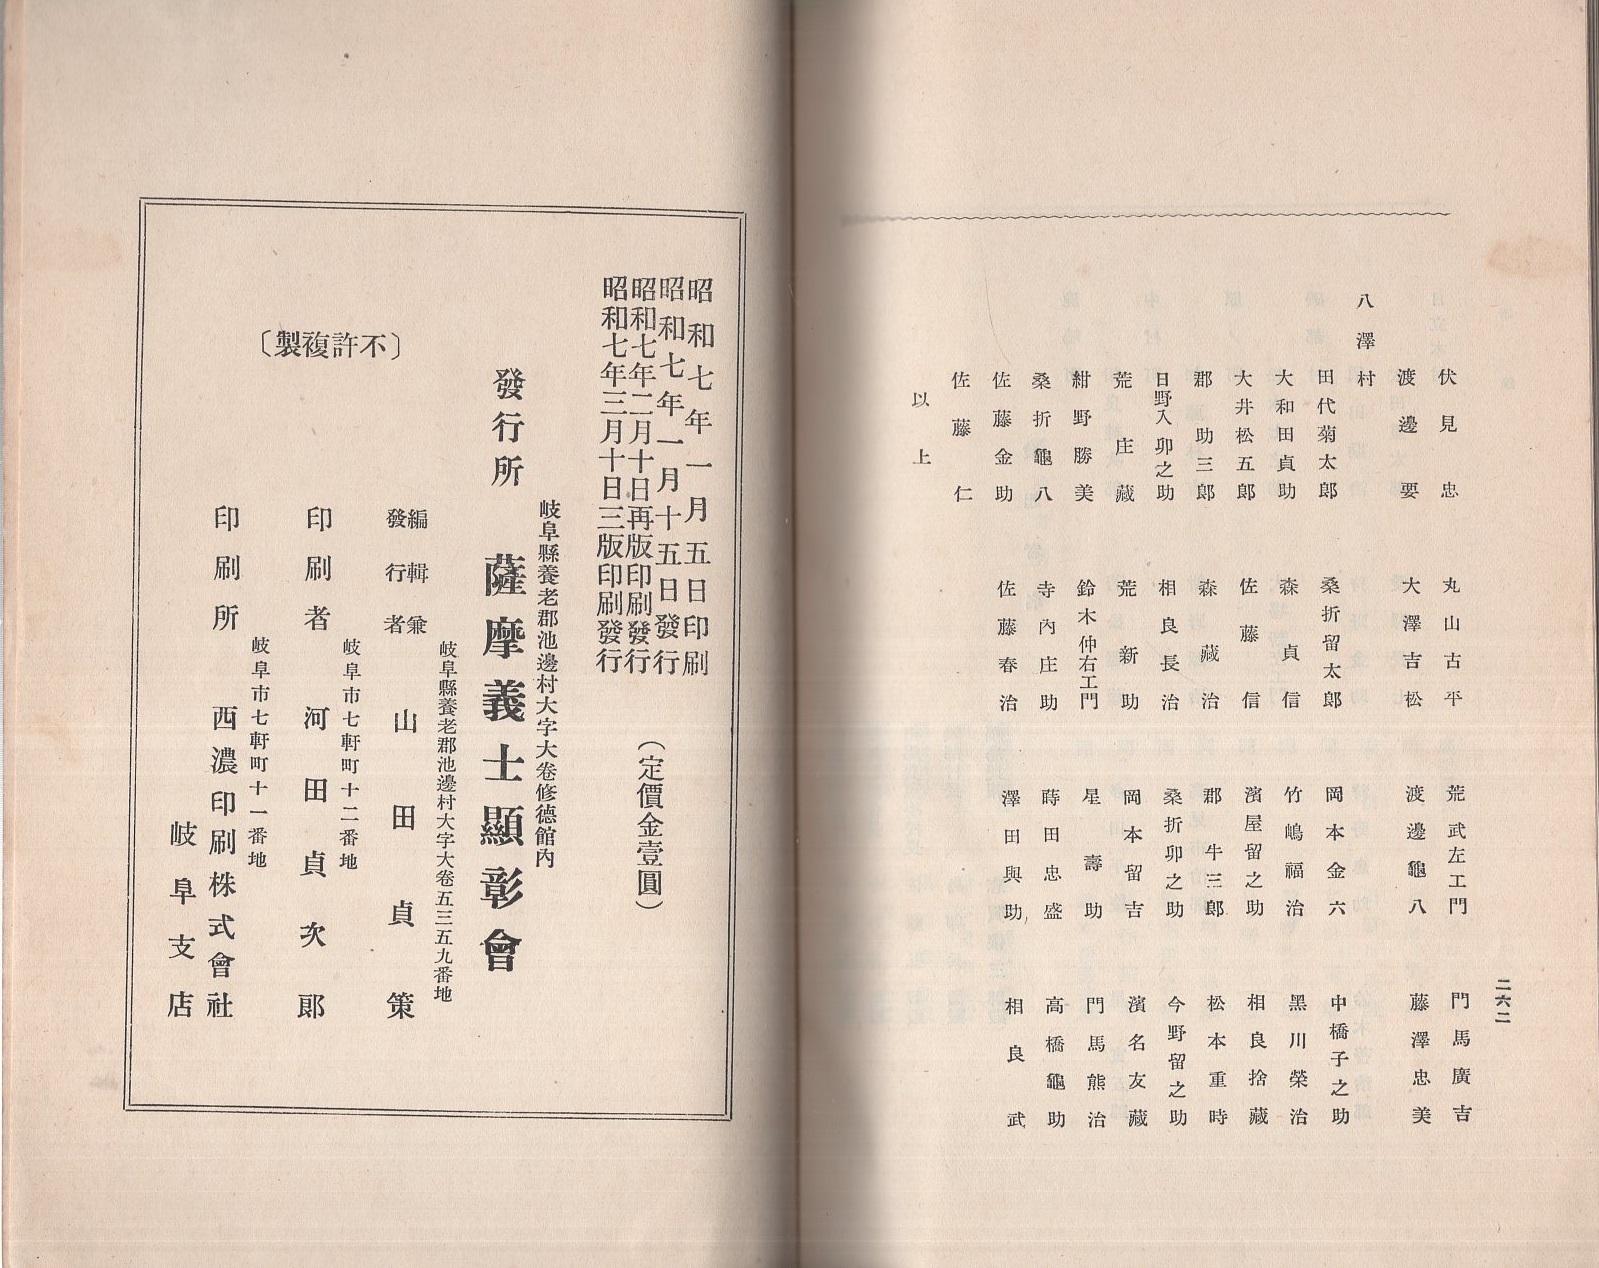 二六二
伏見忠　丸山古平　荒武左エ門　門馬廣吉
渡邊要　大澤吉松　渡邊龜八　藤澤忠美
八澤村
田代菊太郎　桑折留太郎　岡本金六　中橋子之助
大和田貞助　森貞信　竹嶋福治　黑川榮治
大井松五郎　佐藤信　濱屋留之助　相良捨藏
郡助三郎　森藏治　郡牛三郎　松本重時
日野入卯之助　相良長治　桑折卯之助　今野留之助
荒庄藏　荒新助　岡本留吉　濱名友藏
紺野勝美　鈴木仲右エ門　星壽助　門馬熊治
桑折龜八　寺內庄助　蒔田忠盛　高橋龜助
佐藤金助　佐藤春治　澤田與助　相良武
佐藤仁
以上
昭和七年一月五日印刷
昭和七年一月十五日發行
昭和七年二月十日再版印刷發行
昭和七年三月十日三版印刷發行
（定價金壹圓）
岐阜縣養老郡池邊村大字大卷修德館內
發行所　薩摩義士顯彰會
岐阜縣養老郡池邊村大字大卷五三五九番地
編輯兼發行者　山田貞策
〔不許複製〕
岐阜市七軒町十二番地
印刷者　河田貞次郎
岐阜市七軒町十一番地
印刷所　西濃印刷株式會社
岐阜支店